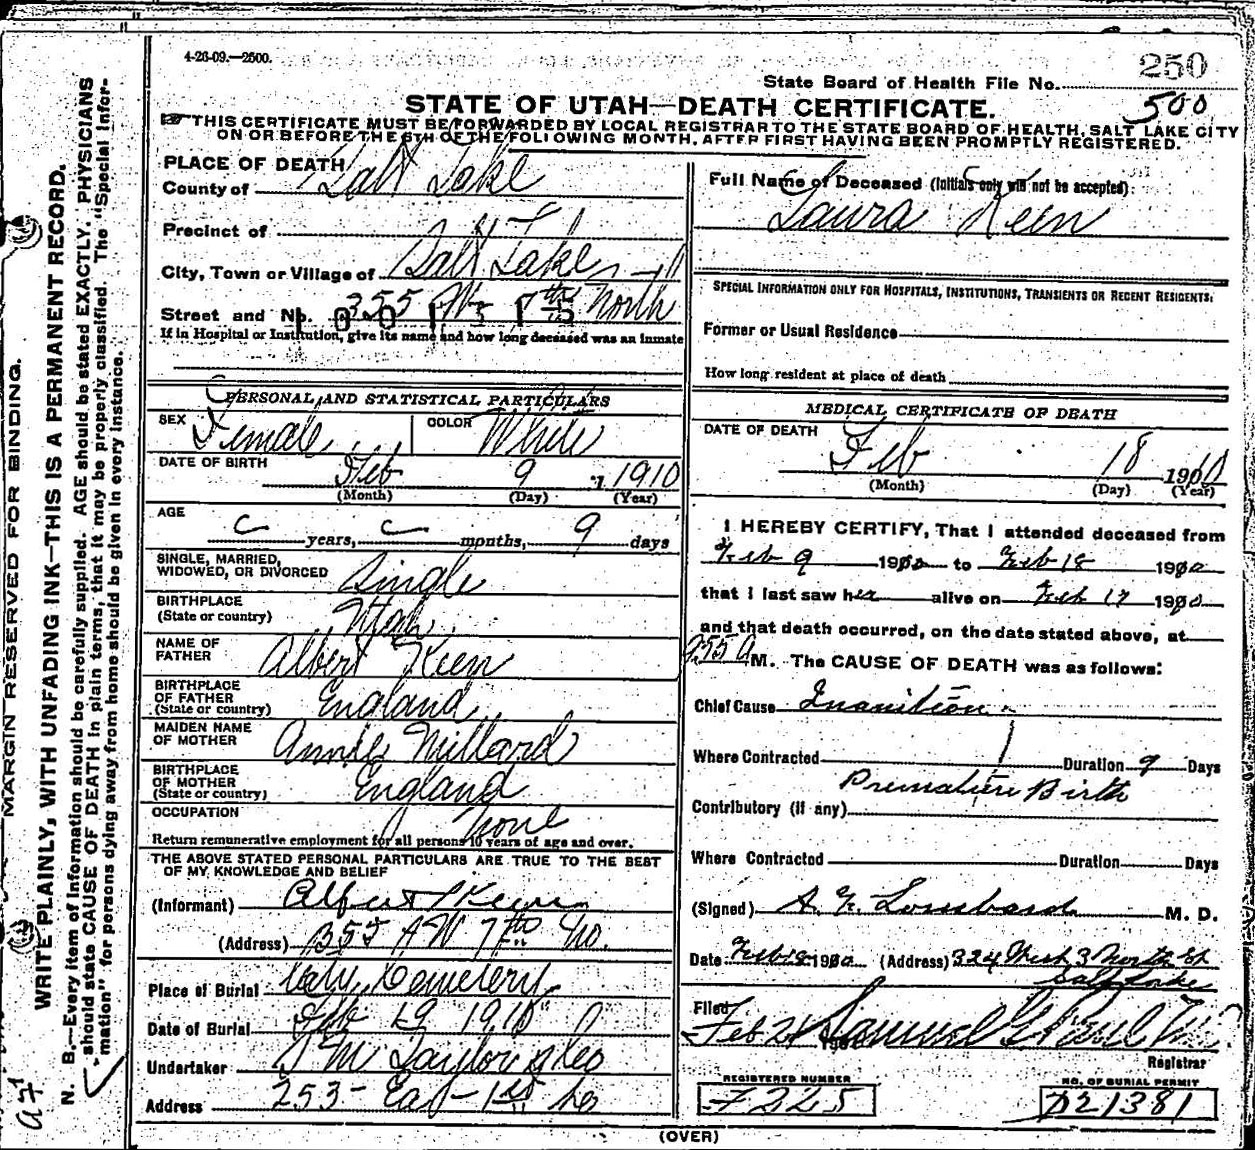 4-26-09.—2500.
250
State Board of Health File No.
500
STATE OF UTAH—DEATH CERTIFICATE.
THIS CERTIFICATE MUST BE FORWARDED BY LOCAL REGISTRAR TO THE STATE BOARD OF HEALTH, SALT LAKE CITY
ON OR BEFORE THE 5TH OF THE FOLLOWING MONTH, AFTER FIRST HAVING BEEN PROMPTLY REGISTERED.
MARGIN RESERVED FOR BINDING.
WRITE PLAINLY, WITH UNFADING INK—THIS IS A PERMANENT RECORD.
N. B.—Every item of information should be carefully supplied. AGE should be stated EXACTLY. PHYSICIANS
should state CAUSE OF DEATH in plain terms, that it may be properly classified. The "Special Infor-
mation" for persons dying away from home should be given in every instance.
PLACE OF DEATH
County of Salt Lake
Precinct of
City, Town or Village of Salt Lake
Street and No. 355 7th North
If in Hospital or Institution, give its name and how long deceased was an inmate
PERSONAL AND STATISTICAL PARTICULARS
SEX Female COLOR White
DATE OF BIRTH Feb 9 1910
(Month) (Day) (Year)
AGE years, months, 9 days
SINGLE, MARRIED,
WIDOWED, OR DIVORCED Single
BIRTHPLACE
(State or country) Utah
NAME OF
FATHER Albert Keen
BIRTHPLACE
OF FATHER
(State or country) England
MAIDEN NAME
OF MOTHER Annie Millard
BIRTHPLACE
OF MOTHER
(State or country) England
OCCUPATION None
Return remunerative employment for all persons 10 years of age and over.
THE ABOVE STATED PERSONAL PARTICULARS ARE TRUE TO THE BEST
OF MY KNOWLEDGE AND BELIEF
(Informant) Albert Keen
(Address) 355 7th No.
Place of Burial City Cemetery
Date of Burial Feb 19 1910
Undertaker S M Taylor & Co
Address 253 East 1st So
Full Name of Deceased (Initials only will not be accepted)
Laura Keen
SPECIAL INFORMATION ONLY FOR HOSPITALS, INSTITUTIONS, TRANSIENTS OR RECENT RESIDENTS:
Former or Usual Residence
How long resident at place of death
MEDICAL CERTIFICATE OF DEATH
DATE OF DEATH Feb 18 1910
(Month) (Day) (Year)
I HEREBY CERTIFY, That I attended deceased from
Feb 9 1910 to Feb 18 1910
that I last saw her alive on Feb 17 1910
and that death occurred, on the date stated above, at
M. The CAUSE OF DEATH was as follows:
Chief Cause Inanition
Where Contracted Duration 9 Days
Premature Birth
Contributory (if any)
Where Contracted Duration Days
(Signed) Lombard M. D.
Date Feb 18 1910 (Address) 324 West 3 North St
Salt Lake
Filed Feb 21 Samuel G Paul
Registrar
REGISTERED NUMBER
F225
NO. OF BURIAL PERMIT
D21381
(OVER)